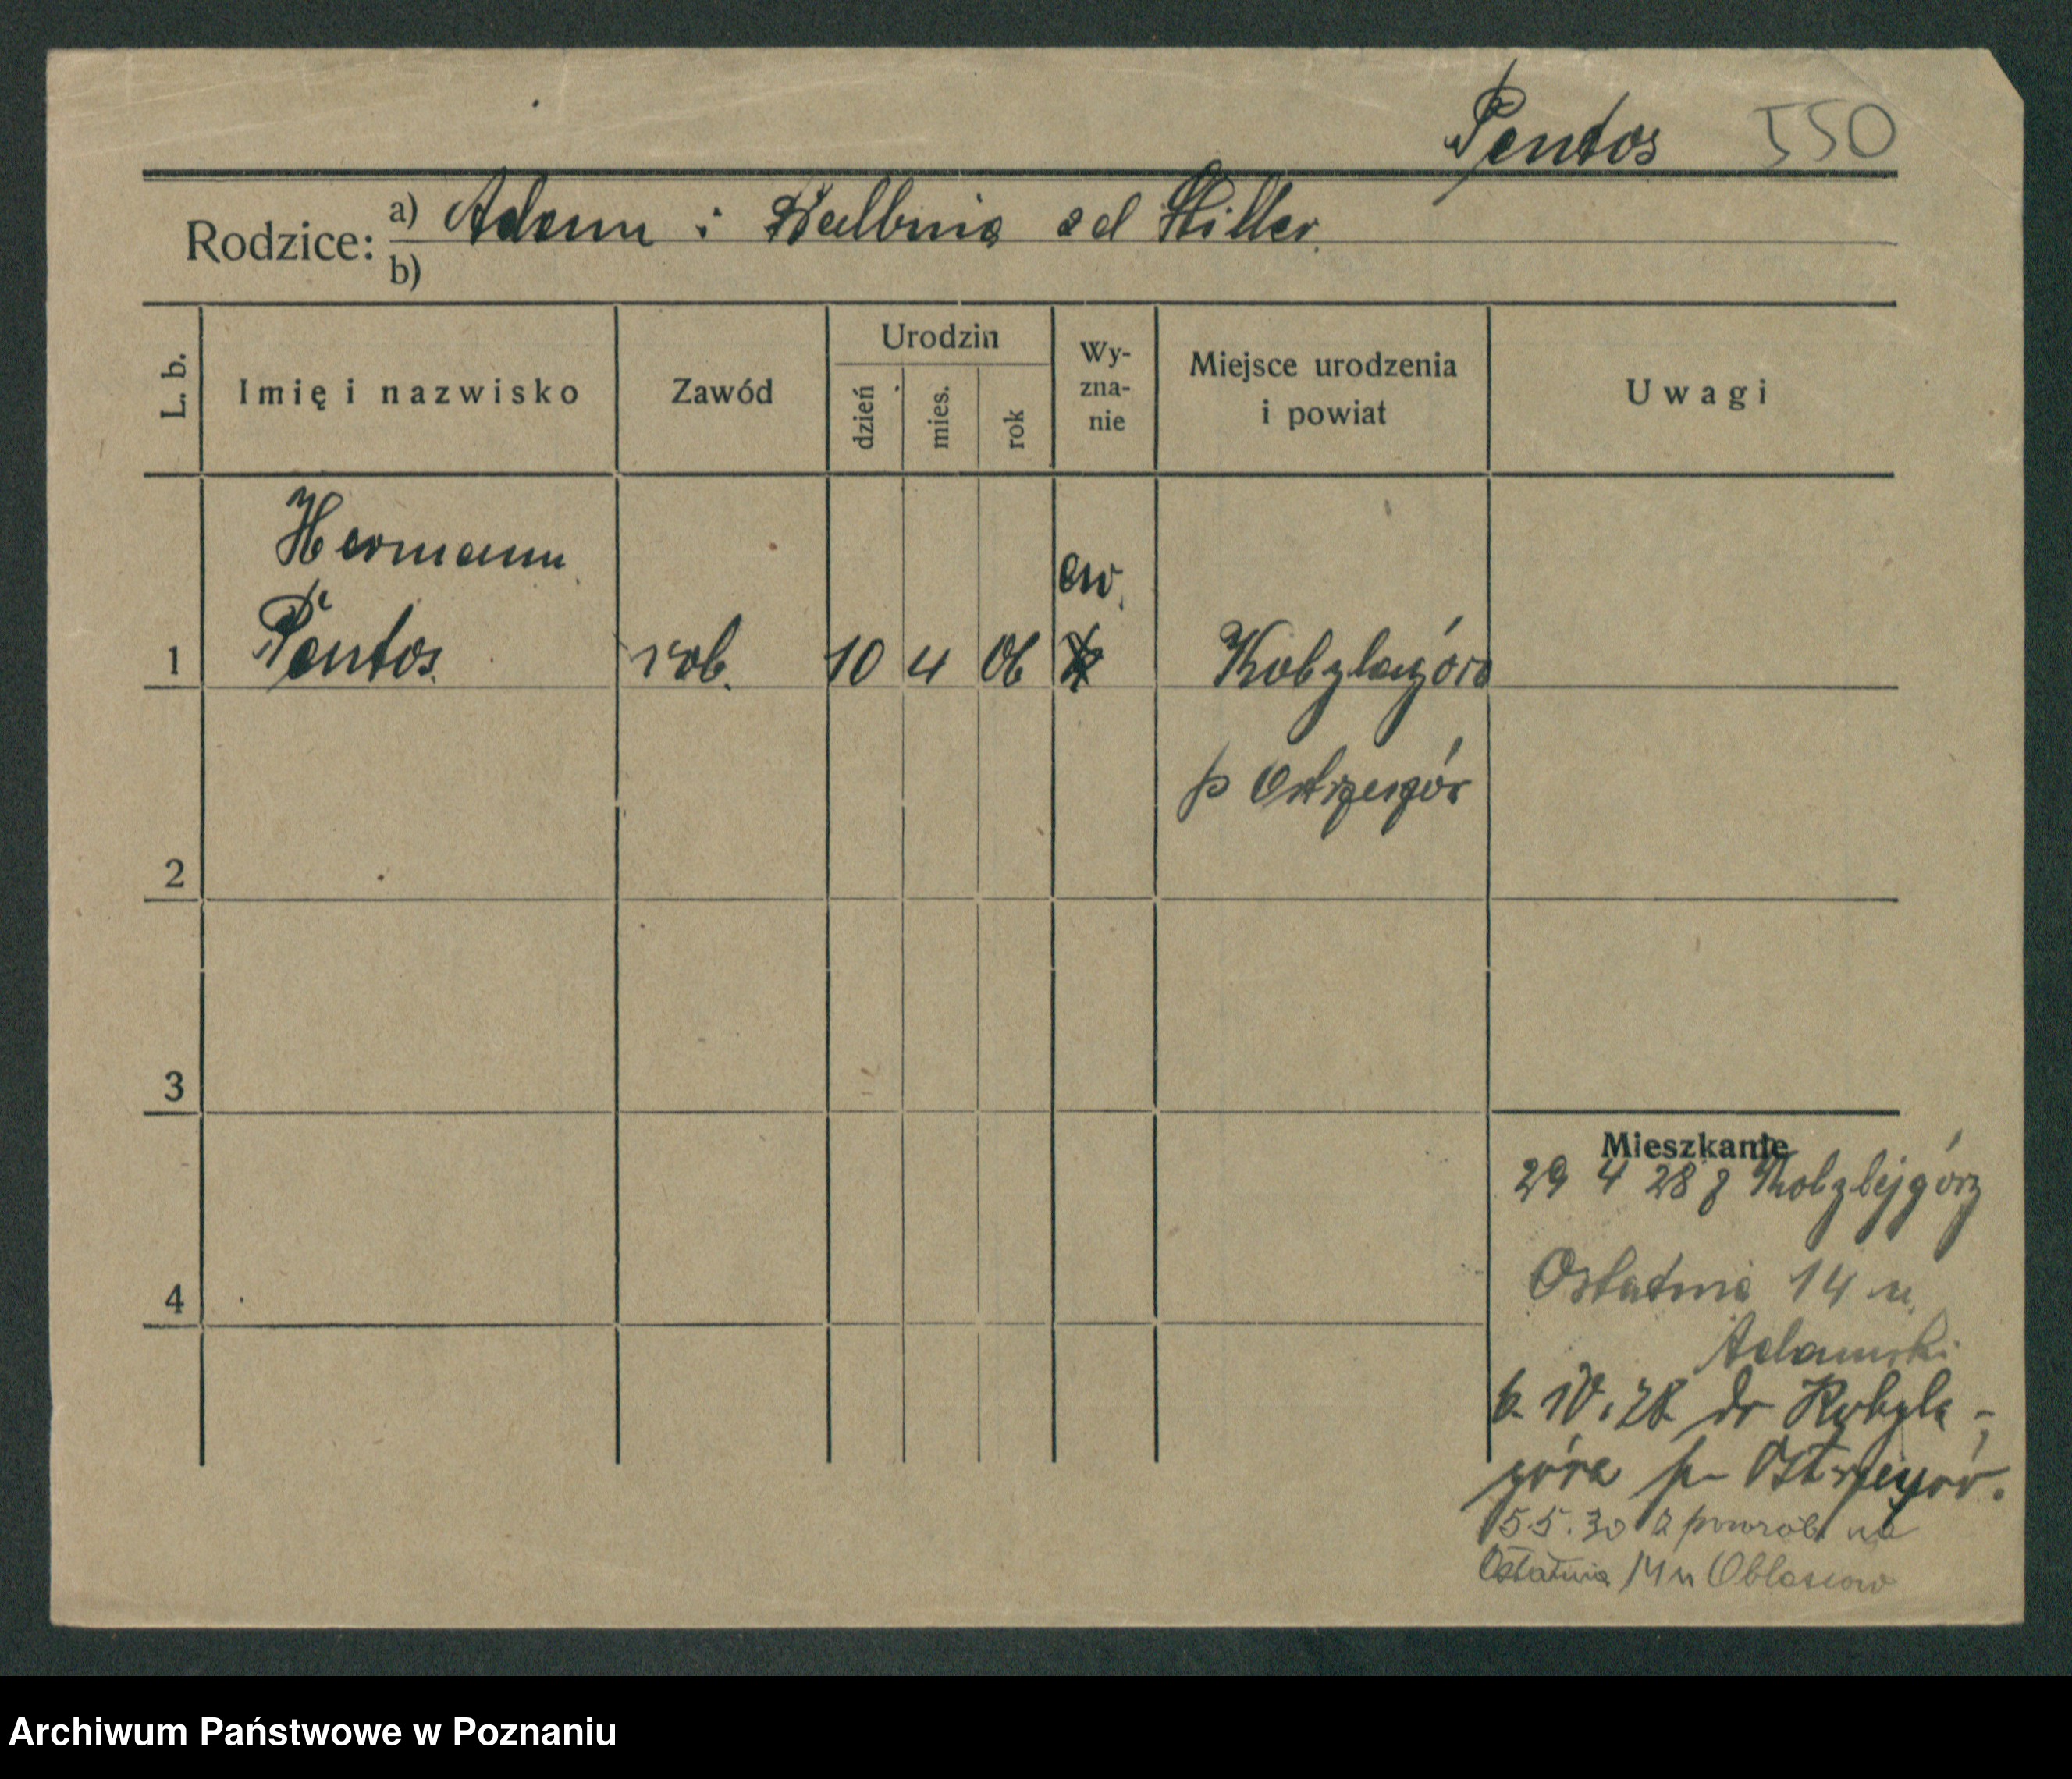 Pentos 550
Rodzice: a) Adam i Balbina od Hiller.
b)
L. b. Imię i nazwisko Zawód Urodzin dzień mies. rok Wy-zna-nie Miejsce urodzenia i powiat Uwagi
Hermann ew.
1 Pentos rob. 10 4 06 Kobylagóra
p Ostrzeszów
2
3
Mieszkanie
29 4 28 z Kobylejgóry
4 Ostatnia 14 u.
Adamski
6. IV. 28. do Kobyla-
góra p. Ostrzeszów.
5.5.30 z powrot na
Ostatnia 14 u
Archiwum Państwowe w Poznaniu